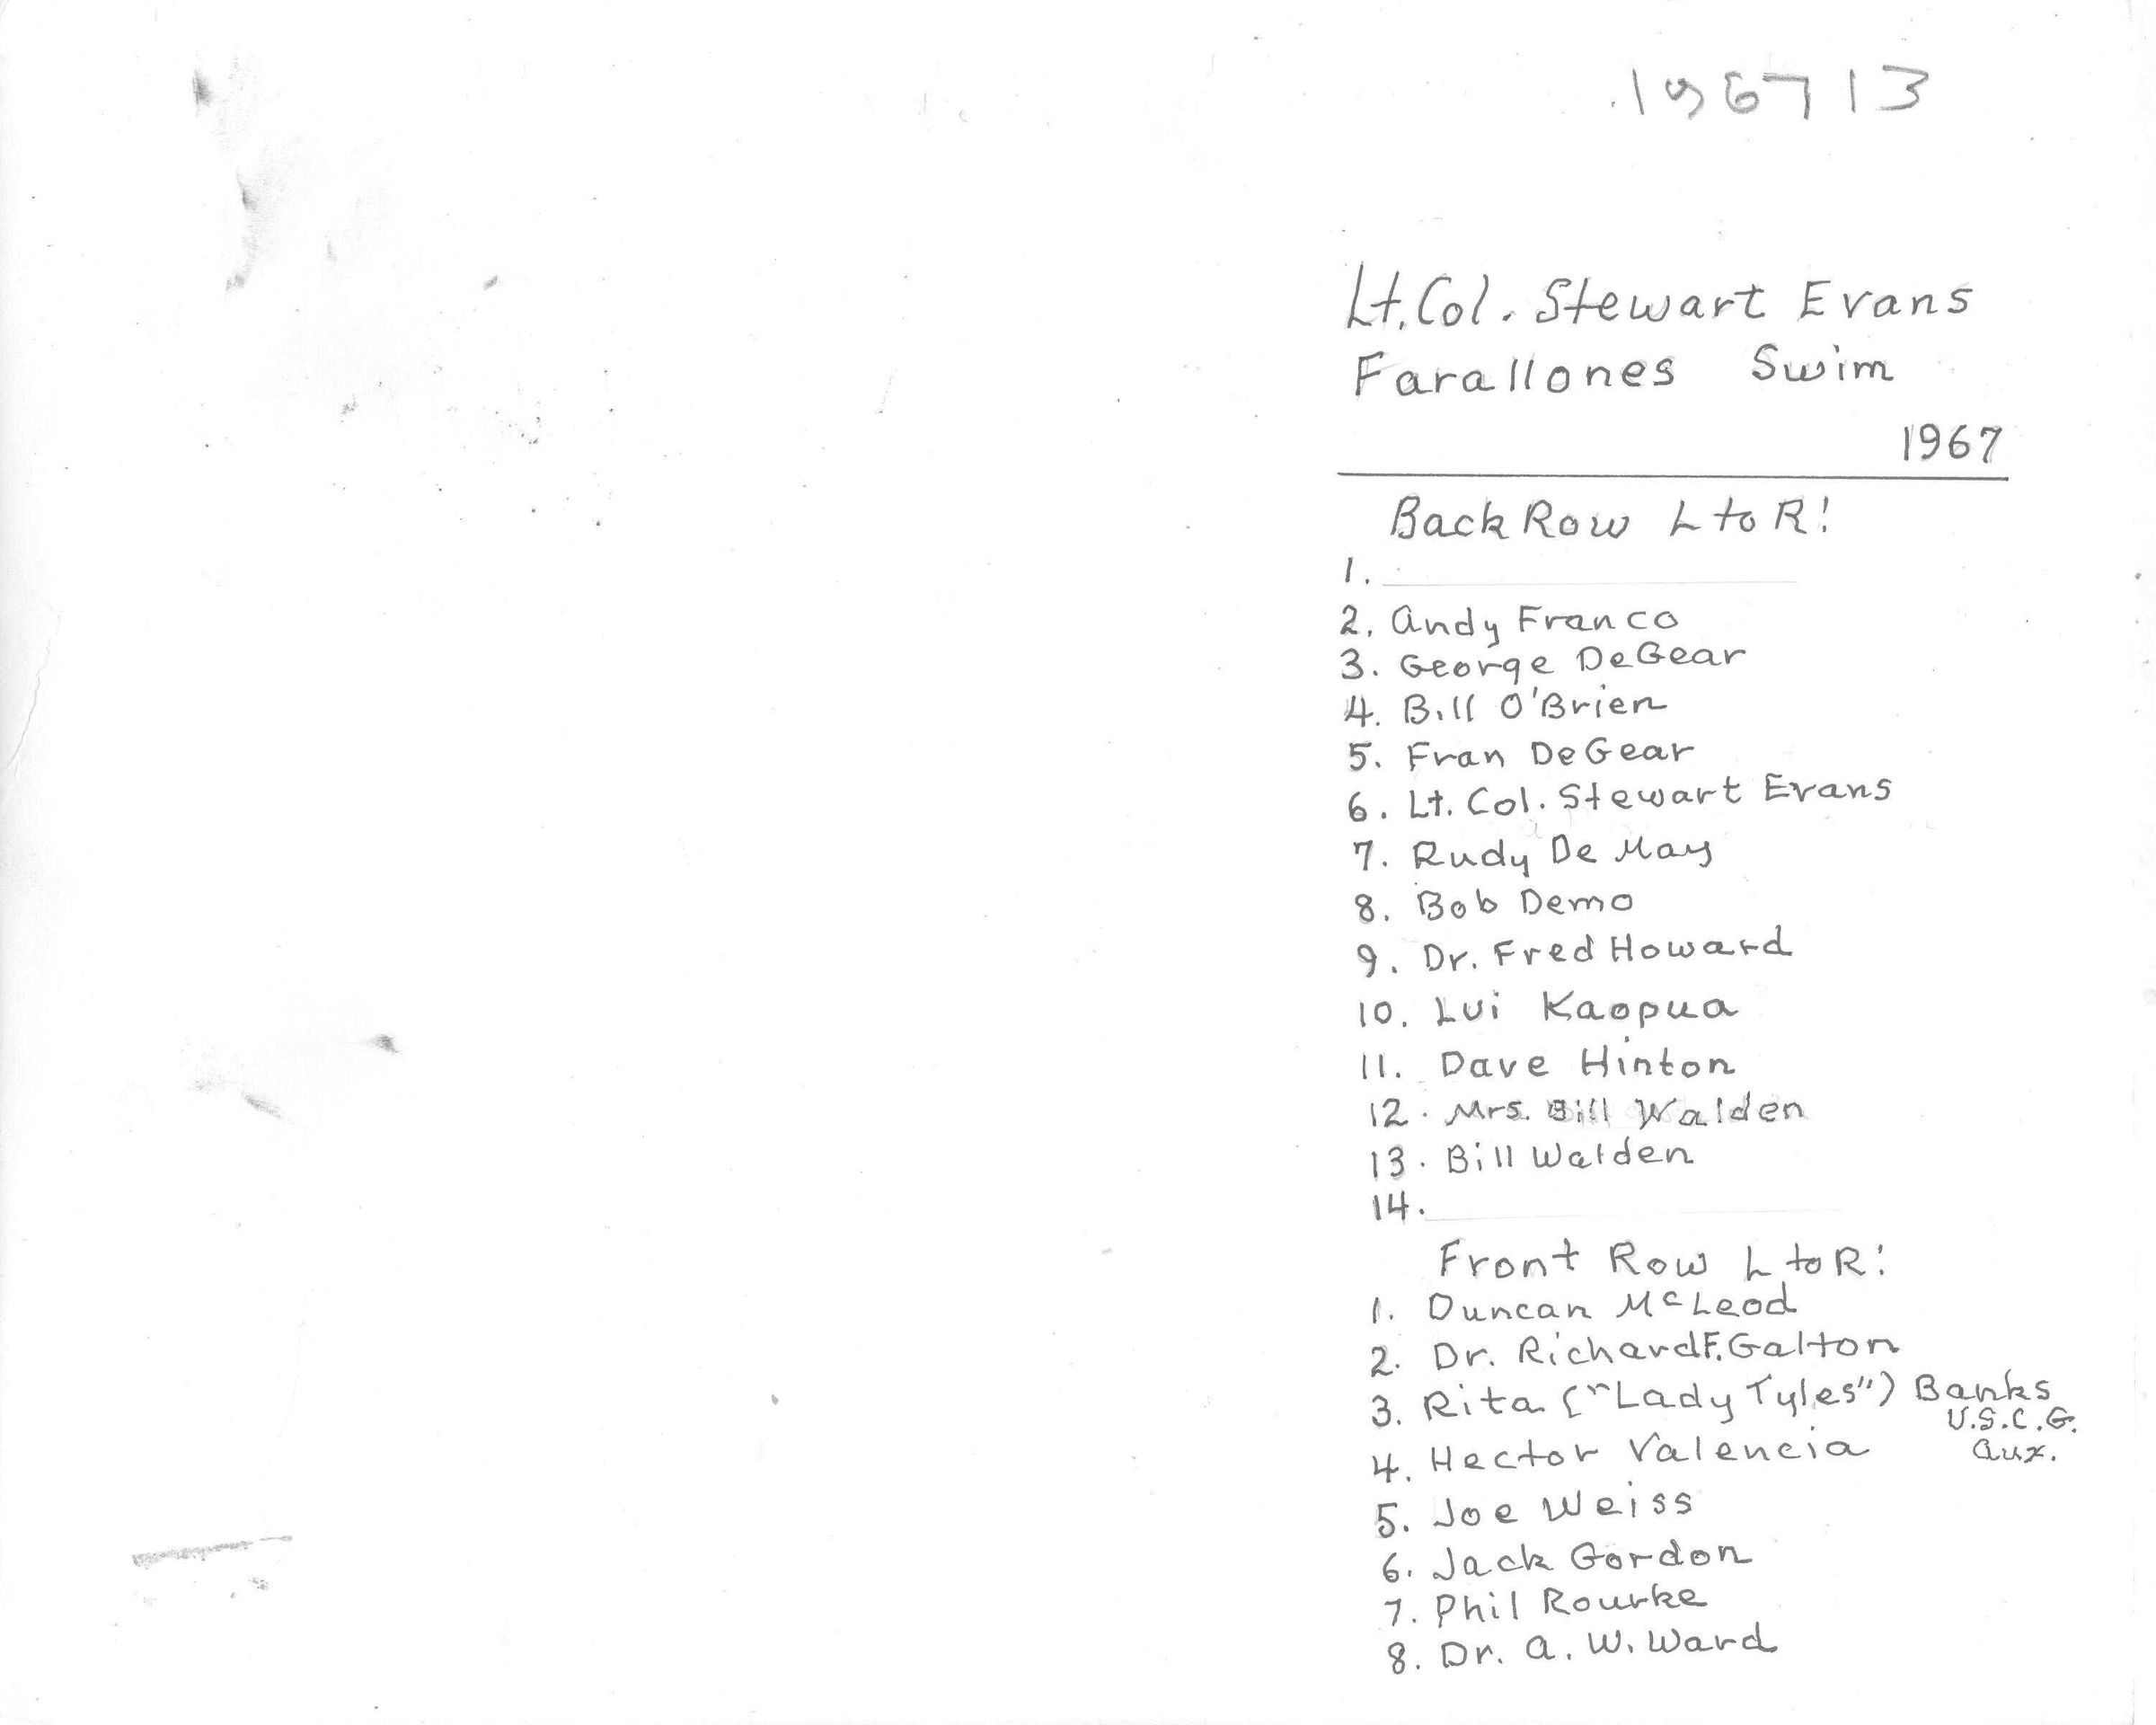 196713
Lt. Col. Stewart Evans
Farallones Swim
1967
Back Row L to R:
1.
2. Andy Franco
3. George DeGear
4. Bill O'Brien
5. Fran DeGear
6. Lt. Col. Stewart Evans
7. Rudy De May
8. Bob Demo
9. Dr. Fred Howard
10. Lui Kaopua
11. Dave Hinton
12. Mrs. Bill Walden
13. Bill Walden
14.
Front Row L to R:
1. Duncan McLeod
2. Dr. Richard F. Galton
3. Rita ("Lady Tyles") Banks
U.S.C.G.
Aux.
4. Hector Valencia
5. Joe Weiss
6. Jack Gordon
7. Phil Rourke
8. Dr. A. W. Ward